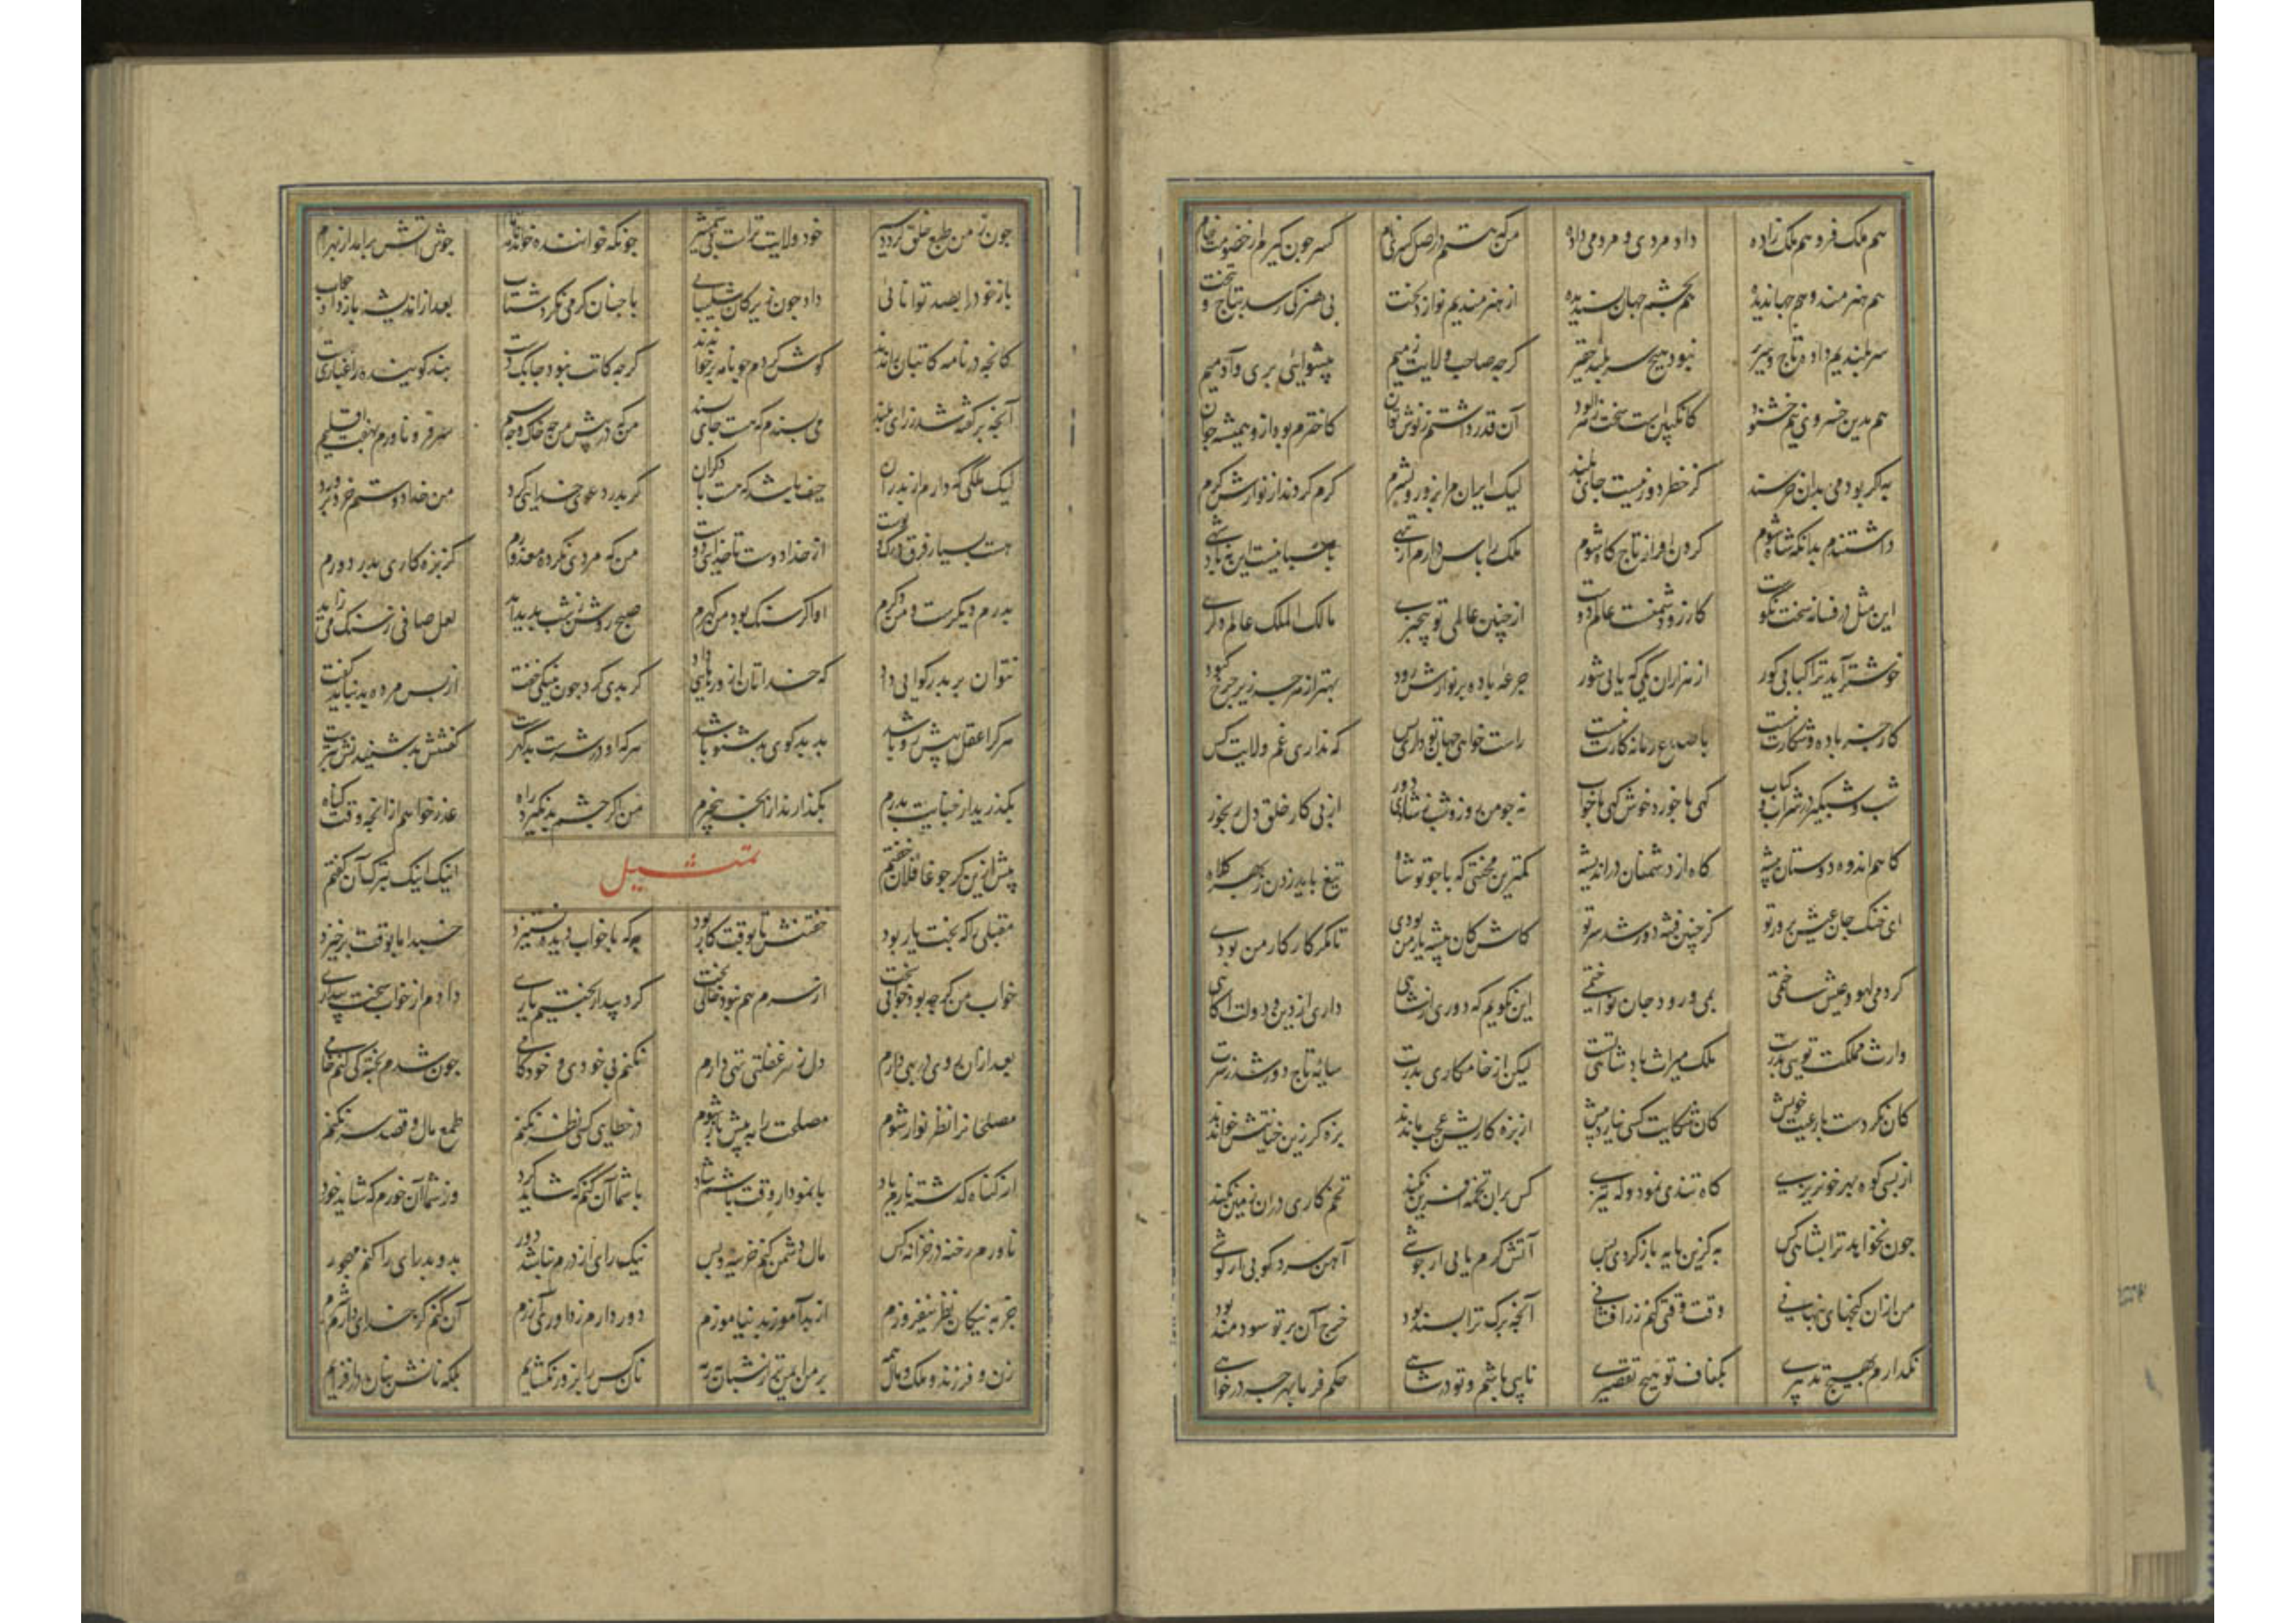 هم ملک فر و هم ملک زاده داد مردی و مردمی داده من که هستم در اصل کسری نام کسر چون گیرم از خصومت خام
هم هنرمند و هم جهاندیده هم بچشم جهان پسندیده از هنرمندیم نوازد بخت بی هنر کی رسد بتاج و تخت
سربلندیم داده تاج و سریر نبود هیچ سربلند حقیر گرچه صاحب ولایت زمیم پیشوای پری و آدمیم
هم بدین خسروی نیم خشنود کانگبین است سخت زهرآلود آن قدر داشتم ز نوش و توان کاخترم بود ازو همیشه جوان
به اگر بودمی بدان خرسند کز خطر دور نیست جای بلند لیک ایران مرا بزور و بشرم کرم کردند از نوازش گرم
داشتندم بدانکه شاه شوم گردن افراز تاج و گاه شوم ملک را پاس دارم از تبهی پاسبانیست این نه پادشهی
این مثل در فسانه سخت نکوست کارزو دشمنست عالم دوست از چنین عالمی تو بیخبری مالک الملک عالم دگری
خوشتر آید ترا کبابی گور از هزاران یکی که یابی شور جرعه باده بر نوازش رود بهتر از هرچه زیر چرخ کبود
کار جز باده و شکارت نیست با صداع زمانه کارت نیست راست خواهی جهان تو داری و بس که نداری غم ولایت کس
شب و شبگیر در شراب و کباب گهی با خورد خوش گهی با خواب نه چو من روز و شب ز شادی دور از پی کار خلق دل رنجور
گاهم اندوه دوستان پیشه گاه از دشمنان در اندیشه کمترین محنتی که با چو تو شاه تیغ باید زدن ز بهر کلاه
ای خنک جان عیش پرور تو کز چنین فتنه دور شد سر تو کاش کان پیشه یار من بودی تا مگر کار کار من بودی
کردمی لهو و عیش ساختمی بمی و رود جان نواختمی این نگویم که دوری از شاهی داری از دین و دولت آگاهی
وارث مملکت تویی بدرست ملک میراث پادشاهی تست لیکن از خامکاری پدرت سایه تاج دور شد ز سرت
کان نکردست با رعیت خویش کان شکایت کسی نیارد پیش از بزه کاریش عجب ماندند بزه گر زین خیانتش خواندند
از بسی کو دبیر خونریزی گاه تندی نمود و گه تیزی کس بران تخمه آفرین نکند تخم کاری در آن زمین نکند
چون نخواهد ترا بشاهی کس به کزین پایه باز گردی پس آتش گرم یابی ار جوشی آهن سرد کوبی ار کوشی
من ازان گنجهای پنهانی وقت وقتی کنم زر افشانی آنچه برگ ترا پسند بود خرج آن بر تو سودمند بود
نگذارم بهیچ تدبیری بکفاف تو هیچ تقصیری نایبی باشم و تو در شاهی حکم فرما بهرچه در خواهی
چون ز من طبع خلق گردد سیر خود ولایت تراست بی شمشیر چونکه خواننده خواند نامه تمام جوش آتش برآمد از بهرام
باز خود را بصد توانائی داد چون زیرکان شکیبایی با چنان گرمی نکرد شتاب بعد از اندیشه باز داد جواب
کانچه در نامه کاتبان راندند گوش کردم چو نامه بر خواندند گرچه کاتب نبود چابکدست پند گوینده را عیاری هست
آنچه برگفته شد ز رای بلند می پسندم که هست جای پسند من که در پیش من چه خاک و چه سیم سر فرو ناورم بهفت اقلیم
لیک ملکی که دارم از پدران حیف باشد که هست با دگران گر پدر دعوی خدایی کرد من خدا دوستم خرد پرورد
هست بسیار فرق در رگ و پوست از خدا دوست تا خدایی دوست من که مردی نکرده معذورم کز بزه کاری پدر دورم
پدرم دیگرست و من دگرم او اگر سنگ بود من گهرم صبح روشن ز شب پدید آید لعل صافی ز سنگ می زاید
نتوان بر پدر گوایی داد که خداتان ازو رهایی داد گر بدی کرد چون بنیکی خفت از پس مرده بد نباید گفت
هرکرا عقل پیش رو باشد بد و بد گوی بد شنو باشد هرکه او در سرشت بد گهرست گفتنش بد شنیدنش بترست
بگذرید از خیانت پدرم بگذارند از آنچه بیخبرم من اگر چشم بد نگیرد راه عذر خواهم از آنچه وقت گناه
پیش ازین گر چو غافلان خفتم اینک اینک بترک آن گفتم
تمثیل
مقبلی را که بخت یار بود خفتنش تا بوقت کار بود به که با خواب دیده نستیزد خسبد اما بوقت برخیزد
خواب من گرچه بود خوابی سخت از سرم هم نبود خالی بخت کرد بیدار بختیم یاری دادم از خواب سخت بیداری
بعد ازان روی در بهی دارم دل ز هر غفلتی تهی دارم نکنم بی خودی و خودکامی چون شدم پخته کی کنم خامی
مصلحان را نظر نواز شوم مصلحت را به پیش باز شوم در خطای کسی نظر نکنم طمع مال و قصد سر نکنم
از گناه گذشته نارم یاد با نمودار وقت باشم شاد با شما آن کنم که شاید کرد وز شما آن خورم که شاید خورد
ناورم رخنه در خزانه کس مال دشمن کنم خزینه و بس نیک رای از درم نباشد دور بد و بدرای را کنم مهجور
جز به نیکان نظر نیفروزم از بدآموز بد نیاموزم دور دارم ز داوری آزرم آن کنم کز خدای دارم شرم
زن و فرزند و ملک و مال همه بر من ایمن تر از شبان برمه نان کس را بزور نگشایم بلکه نانش بنان درافزایم